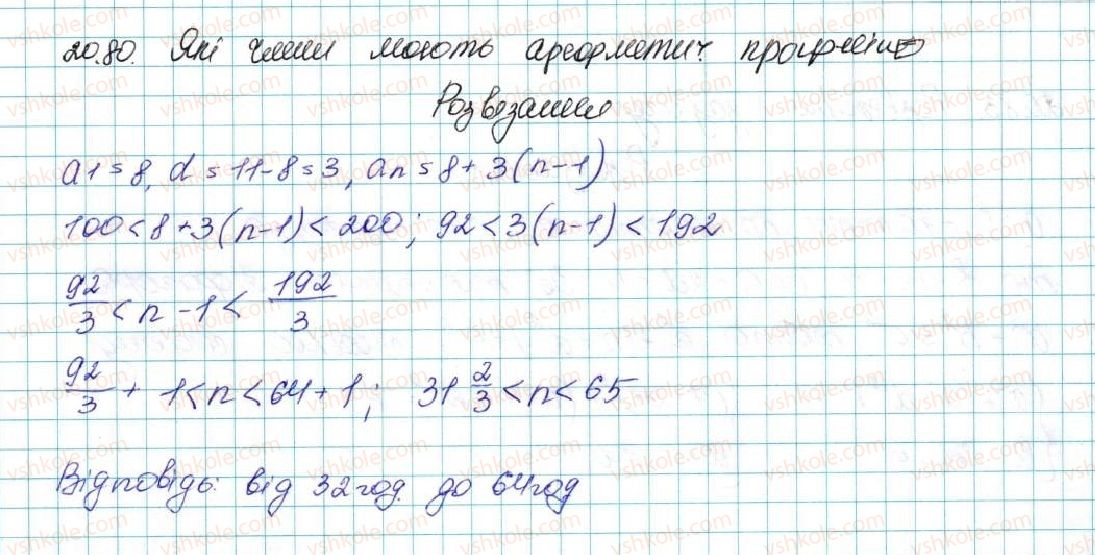 20.80. Які члени мають арифметич. прогресію
Розв'язання
a1 = 8, d = 11-8 = 3, an = 8 + 3(n-1)
100 < 8 + 3(n-1) < 200; 92 < 3(n-1) < 192
92/3 < n - 1 < 192/3
92/3 + 1 < n < 64 + 1; 31 2/3 < n < 65
Відповідь: від 32 год. до 64 год